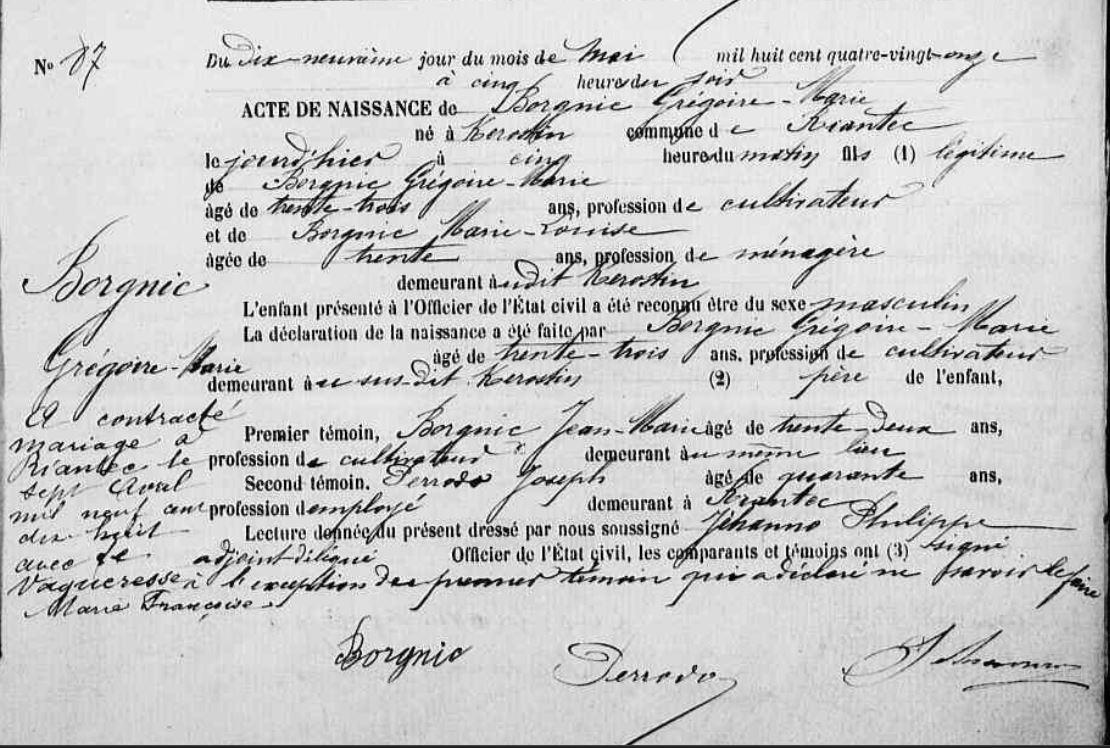 No 87
Du dix-neuvième jour du mois de Mai mil huit cent quatre-vingt-onze
à cinq heures du soir
ACTE DE NAISSANCE de Borgnic Grégoire-Marie
né à Kerostin commune de Riantec
le jourd'hier à cinq heures du matin fils (1) légitime
de Borgnic Grégoire-Marie
âgé de trente-trois ans, profession de cultivateur
et de Borgnic Marie-Louise
âgée de trente ans, profession de ménagère
demeurant à udit Kerostin
L'enfant présenté à l'Officier de l'État civil a été reconnu être du sexe masculin
La déclaration de la naissance a été faite par Borgnic Grégoire-Marie
âgé de trente-trois ans, profession de cultivateur
demeurant à u sus-dit Kerostin (2) père de l'enfant,
Premier témoin, Borgnic Jean-Marie âgé de trente-deux ans,
profession de cultivateur demeurant àu même lieu
Second témoin. Perrodo Joseph âgé de quarante ans,
profession d'employé demeurant à Riantec
Lecture donnée du présent dressé par nous soussigné Jéhanno Philippe
adjoint délégué Officier de l'État civil, les comparants et témoins ont (3) signé
à l'exception du premier témoin qui a déclaré ne savoir le faire
Borgnic
Grégoire-Marie
A contracté
mariage à
Riantec le
sept Avril
mil neuf cent
dix huit
avec Le
Vaqueresse
Marie Françoise.
Borgnic Perrodo